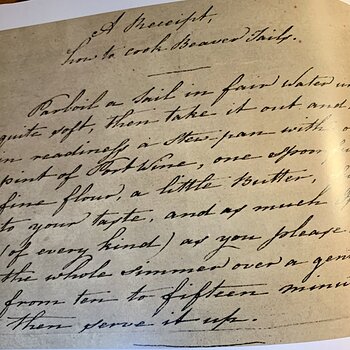 A Receipt,
how to cook Beaver Tails.
Parboil a tail in fair Water un
quite soft, then take it out and
in readiness a Stew pan with
pint of Port Wine, one spoon
fine flour, a little Butter,
to your taste, and as much
(of every kind) as you please
the whole simmer over a gen
from ten to fifteen minu
then serve it up.